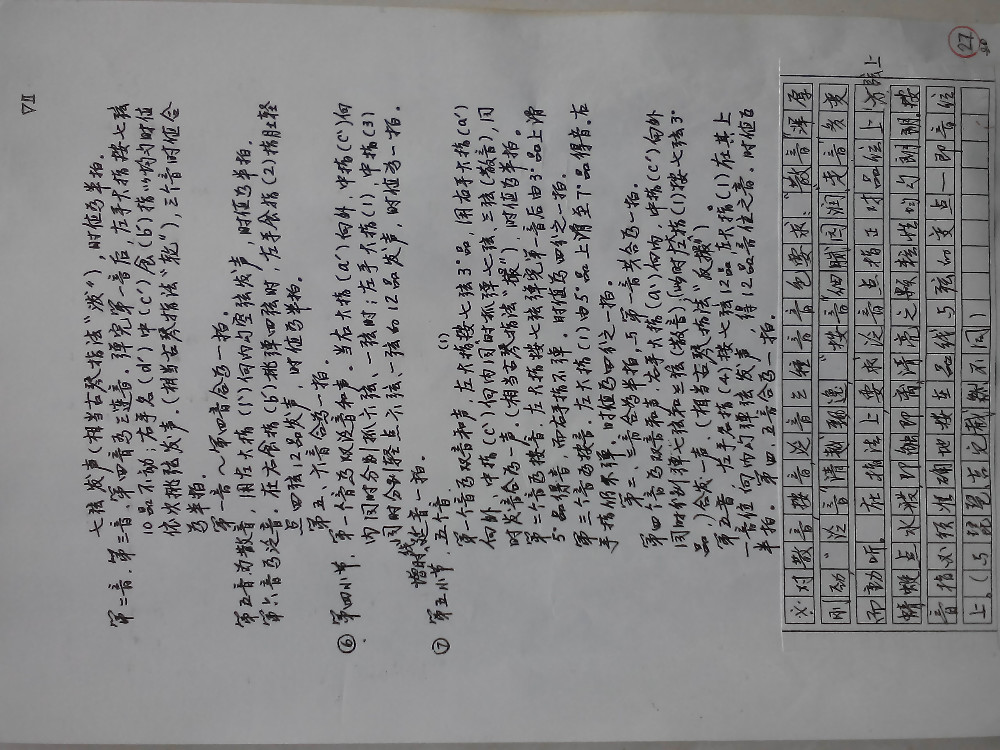 VII
七弦发声(相当古琴指法“发”),时值为半拍。
第二音、第三音、第四音为三连音。弹完第一音后,左手大指按七弦
10品不动;右手名(d')中(c')食(b')指以均匀时值
依次挑弦发声。(相当古琴指法“轮”),三个音时值合
为半拍。
第一音~第四音合为一拍。
第五音为散音,用右大指(1')向内勾空弦发声,时值为半拍。
第六音为泛音。在右食指(b')挑弹四弦时,左手食指(2)指肚轻
点四弦12品发声,时值为半拍。
第五、六音合为一拍。
⑥第四小节,第一个音为双泛音和声。当右大指(a')向外,中指(c')向
内同时分别抓六弦、一弦时;左手大指(1),中指(3)
同时分别轻点六弦、一弦的12品发声,时值为一拍。
增时线,延音一拍。
⑦第五小节,五个音。
(1)
第一个音为双音和声,左大指按七弦3°品,用右手大指(a')
向外、中指(c')向内同时抓弹七弦、三弦(散音),同
时发声合为一声。(相当古琴指法“撮”),时值为半拍。
第二个音为按音。左大指按七弦弹完第一音后由3°品上滑
5°品得音,而右手指不弹。时值为四分之一拍。
第三个音为按音。左大指(1)由5°品上滑至7°品得音。右
手指仍不弹。时值为四分之一拍。
第二、三音合为半拍,与第一音共合为一拍。
第四个音为双音和声。右手大指(a')向内,中指(c')向外
同时分别弹七弦和三弦(散音),此时左指(1)按七弦3°
品,)合发一声、(相当古琴指法“反撮”)
第五音,左手名指(4)按七弦12品,左大指(1)在其上
一音位向内勾弹弦发声,得12品音位之音。时值为
半拍。第四、五音合为一拍。
※对散音按音泛音三种音音色要求:“散音”浑厚
刚劲,“泛音”清越飘逸,“按音”细腻圆润“走音”多变
而动听。在指法上要求泛音点指正对品位上方弦上
蜻蜓点水般即触即离浮亮之颗粒性均匀朗朗。按
音指必须准确地按在品线与弦的交点—即音位
上。(与琵琶吉它截然不同)
27